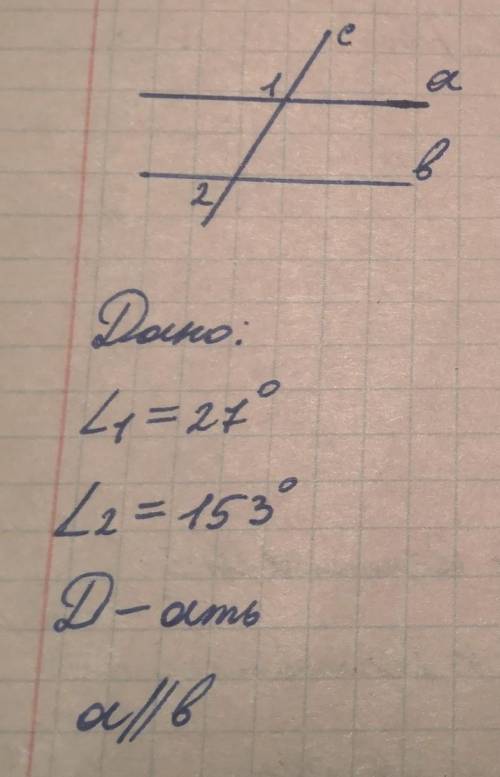 c
1
a
b
2
Дано:
∠1 = 27°
∠2 = 153°
Д-ать
a//b